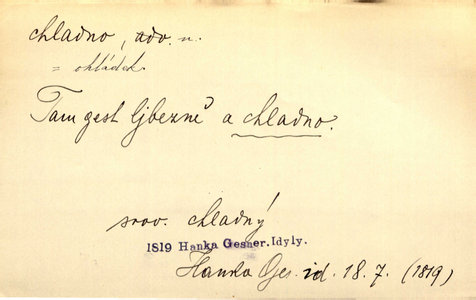 chladno, adv. n.
= chládek
Tam gest ljbezně a chladno.
srov. chladný
1819 Hanka Gesner.Idyly.
Hanka Ges. id. 18. 7. (1819)